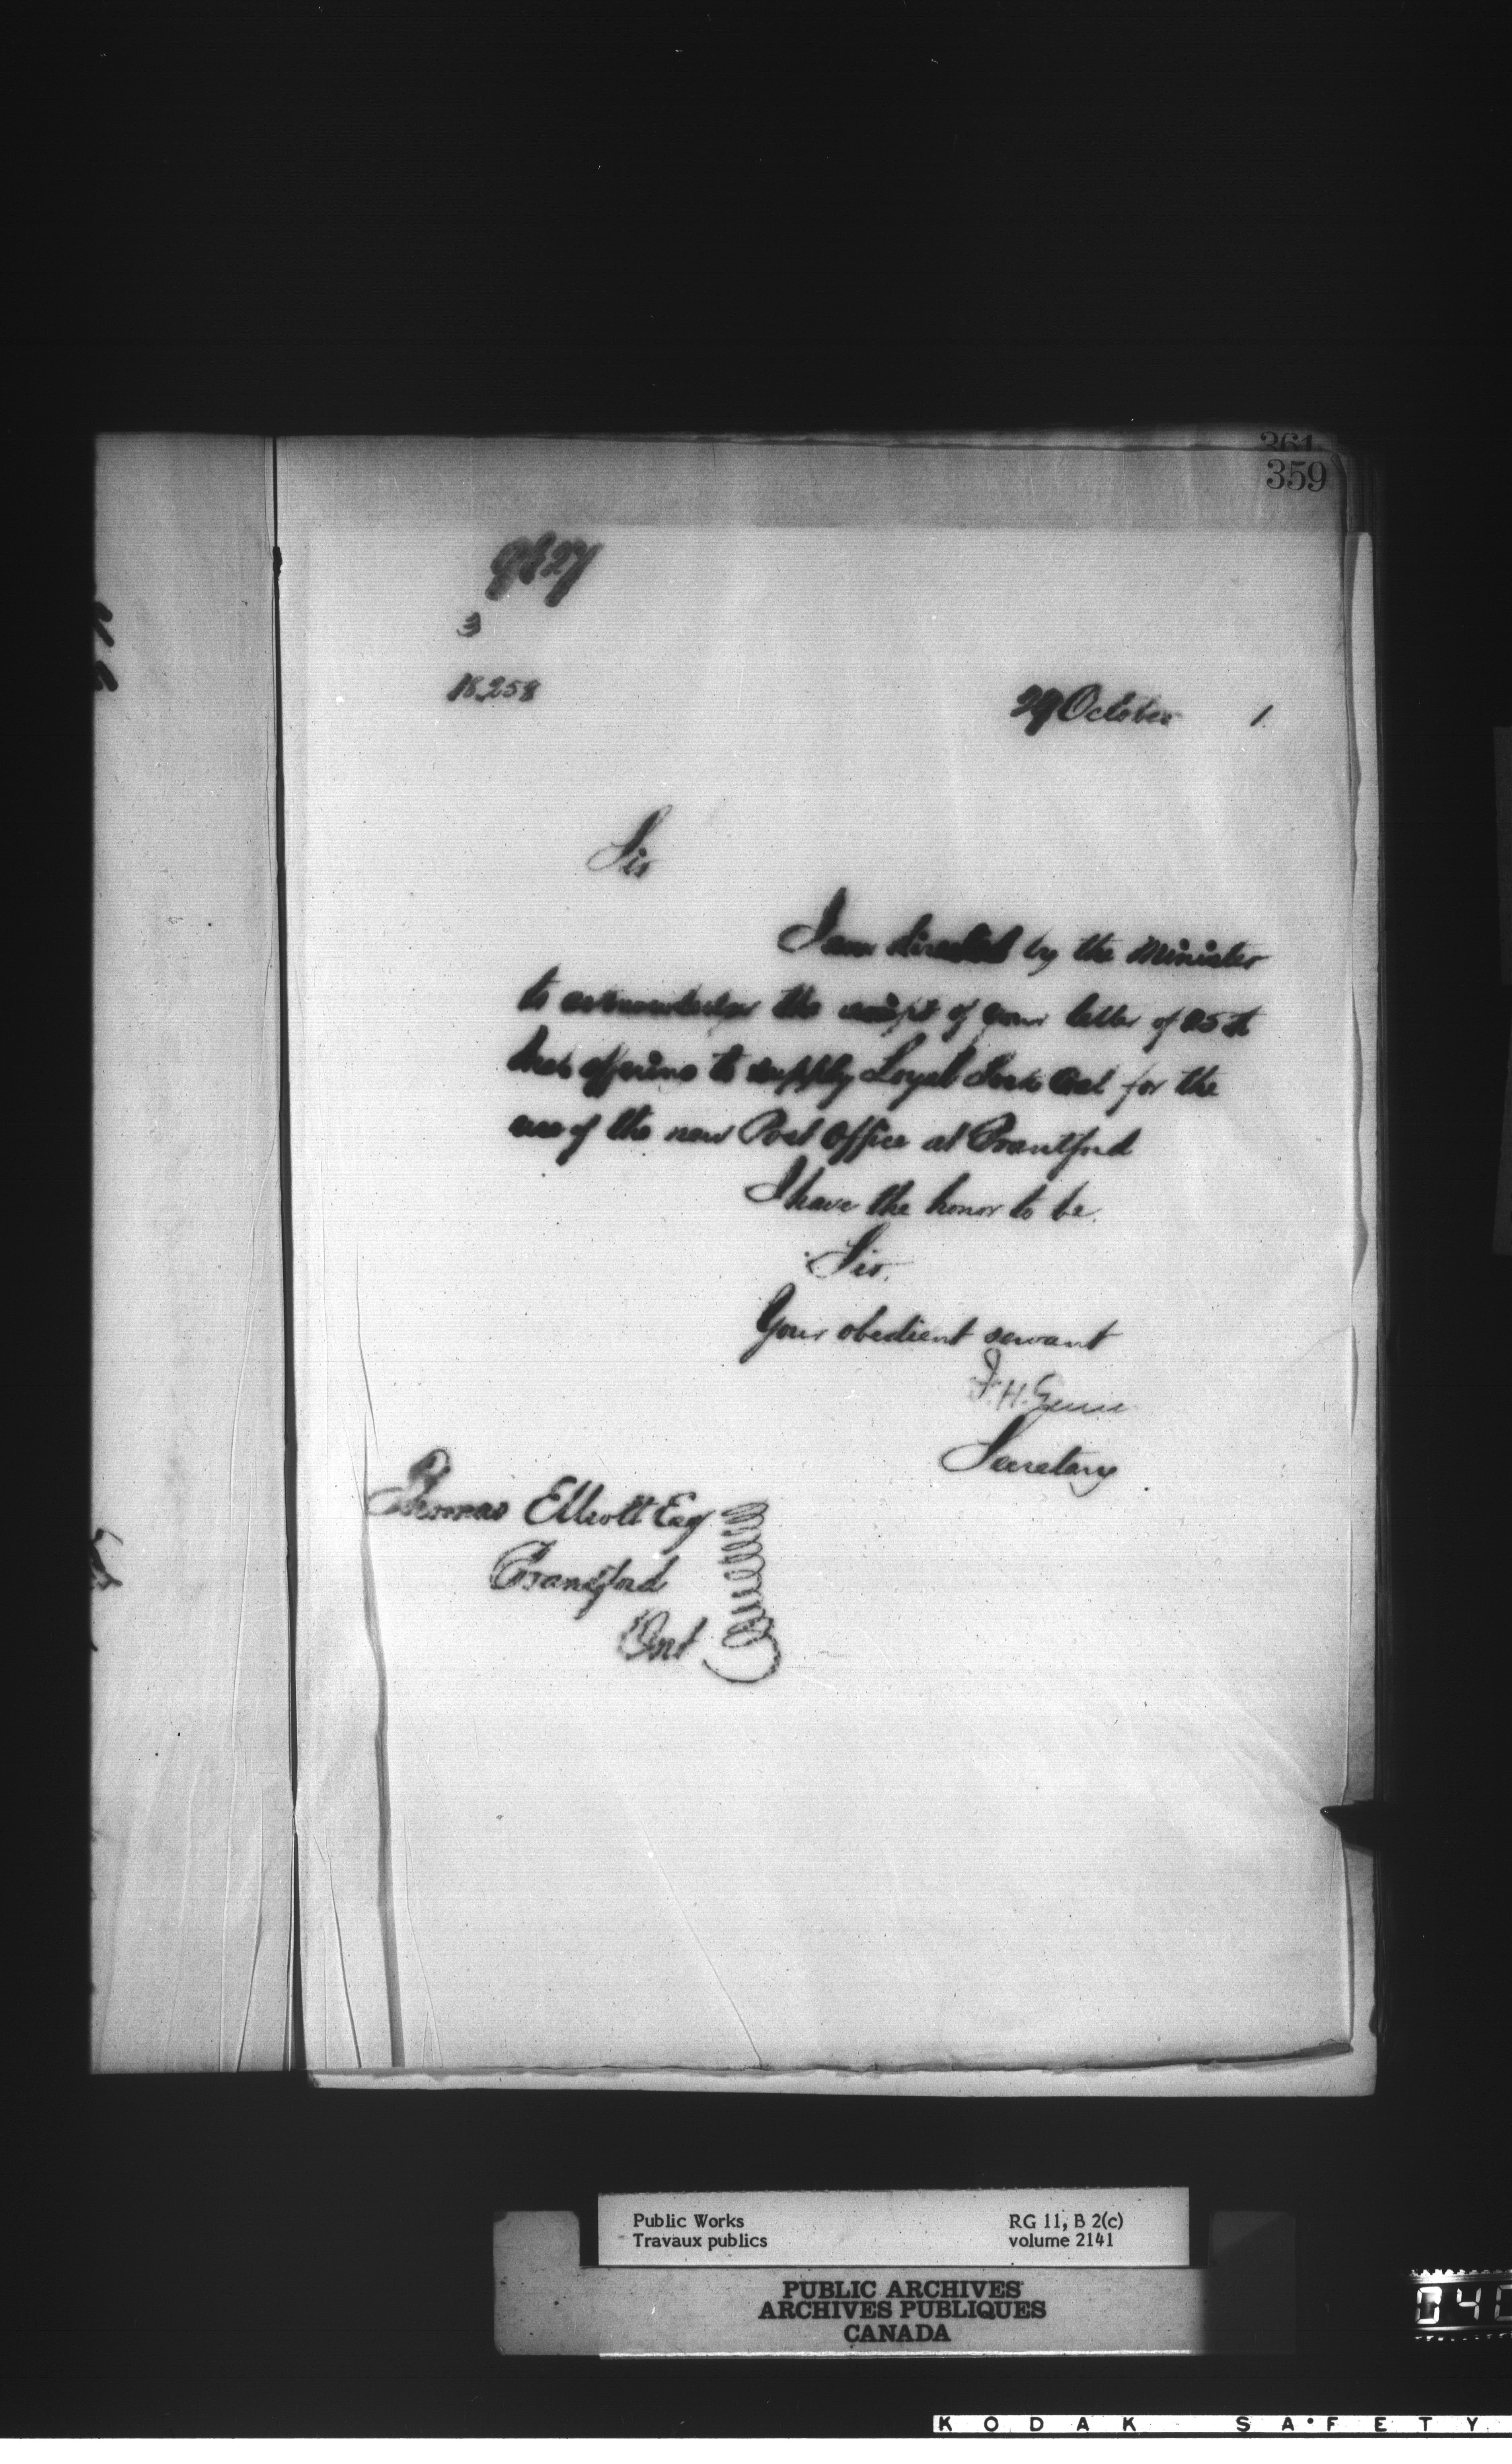 361
359
9827
3
18,258
29 October 1
Sir
I am directed by the Minister
to acknowledge the receipt of your letter of 25th
offering to supply Loyal Sock Coal for the
use of the new Post Office at Brantford
I have the honor to be.
Sir.
Your obedient servant
F. H. Ennis
Secretary
Thomas Elliott Esq
Brantford
Ont
Public Works
Travaux publics
RG 11, B 2(c)
volume 2141
PUBLIC ARCHIVES
ARCHIVES PUBLIQUES
CANADA
040
KODAK SAFETY